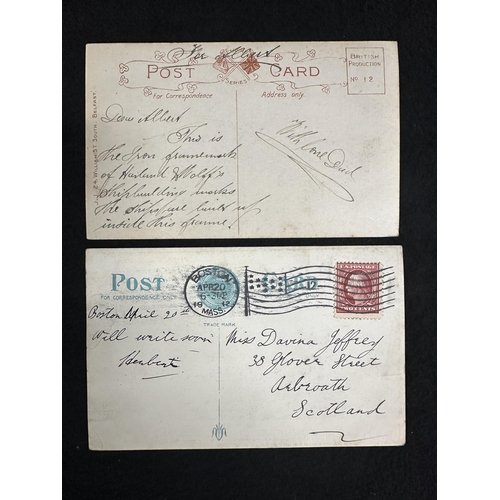 For Albert
POST CARD
SERIES
BRITISH
PRODUCTION
No 12
For Correspondence
Address only
24, WILLIAM ST SOUTH, BELFAST
Dear Albert
This is
the Iron framework
of Harland & Wolff's
Shipbuilding works
the ships are built up
inside this frame.
With love Dad
POST CARD
FOR CORRESPONDENCE ONLY
BOSTON
APR 20
1912
MASS.
12
U.S. POSTAGE
TRADE MARK
Boston April 20th
Will write soon
Herbert
Miss Davina Jeffrey
38 Glover Street
Arbroath
Scotland